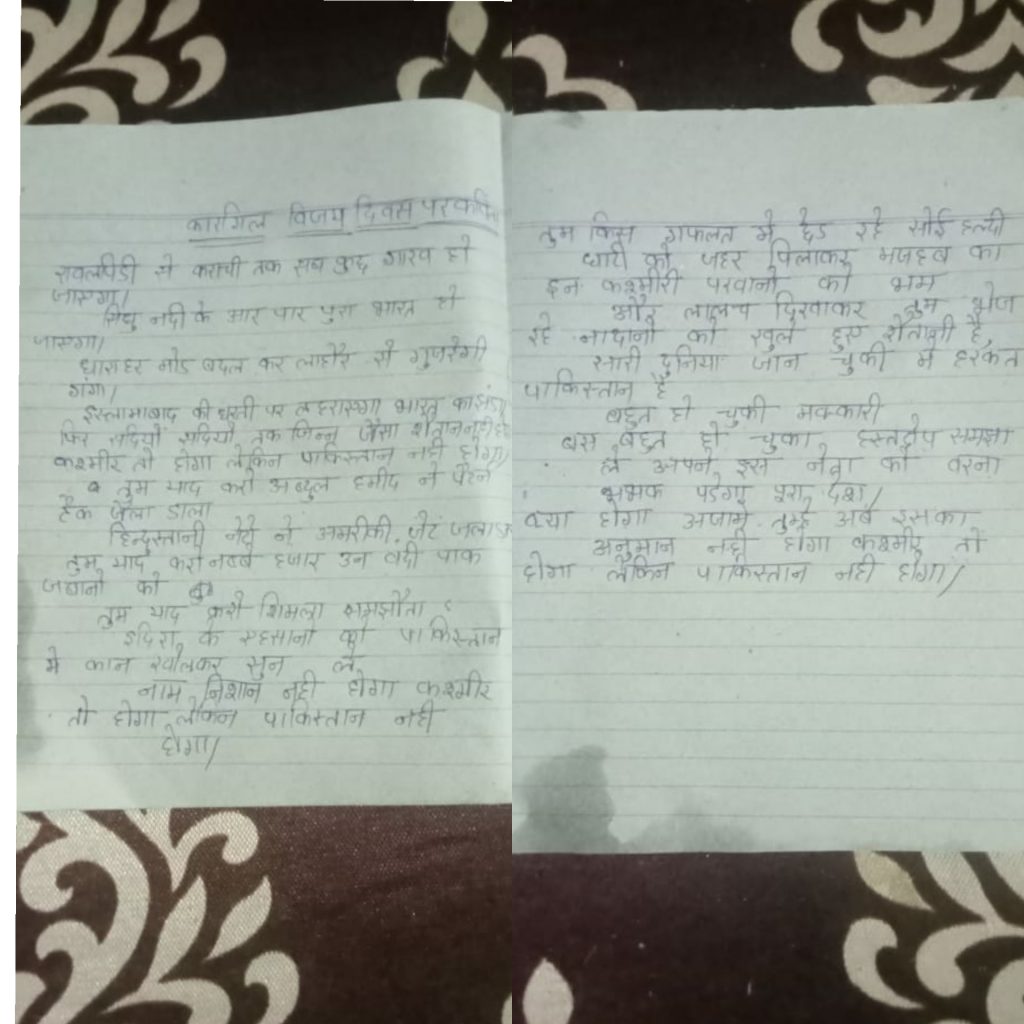 कारगिल विजय दिवस पर कविता
रावलपिंडी से कराची तक सब कुछ गारत हो
जाएगा।
सिंधु नदी के आर पार पुरा भारत हो
जाएगा।
मोड बदल कर लाहौर से गुजरेगी
गंगा।
इस्लामाबाद की धरती पर लहराएगा भारत का झंडा
फिर सदियों सदियों तक जिन्ना जैसा शैतान नही
कश्मीर तो होगा लेकिन पाकिस्तान नही होगा।
तुम याद करो अब्दुल हमीद ने पैटन
टैंक जला डाला
हिन्दुस्तानी नेटो ने अमरीकी जेट जला
तुम याद करो नब्बे हजार उन बंदी पाक
जवानो को
तुम याद करो शिमला समझौता
इंदिरा के एहसानो को पाकिस्तान
मे कान खोलकर सुन ले
नाम निशान नही होगा कश्मीर
तो होगा लेकिन पाकिस्तान नही
होगा।
तुम किस गफलत मे छेड रहे सोई हल्दी
घाटी को जहर पिलाकर मजहब का
इन कश्मीरी परवानो को भय
और लालच दिखाकर तुम भेज
रहे नादानो को खुले हुए शैतानी है,
सारी दुनिया जान चुकी मे हरकत
पाकिस्तान है
बहुत हो चुकी मक्कारी
बस बहुत हो चुका हस्तक्षेप समझा
ले अपने इस नेता को वरना
भभक पडेगा पूरा देश।
क्या होगा अंजाम तुम्हे अब इसका
अनुमान नही होगा कश्मीर तो
होगा लेकिन पाकिस्तान नही होगा।